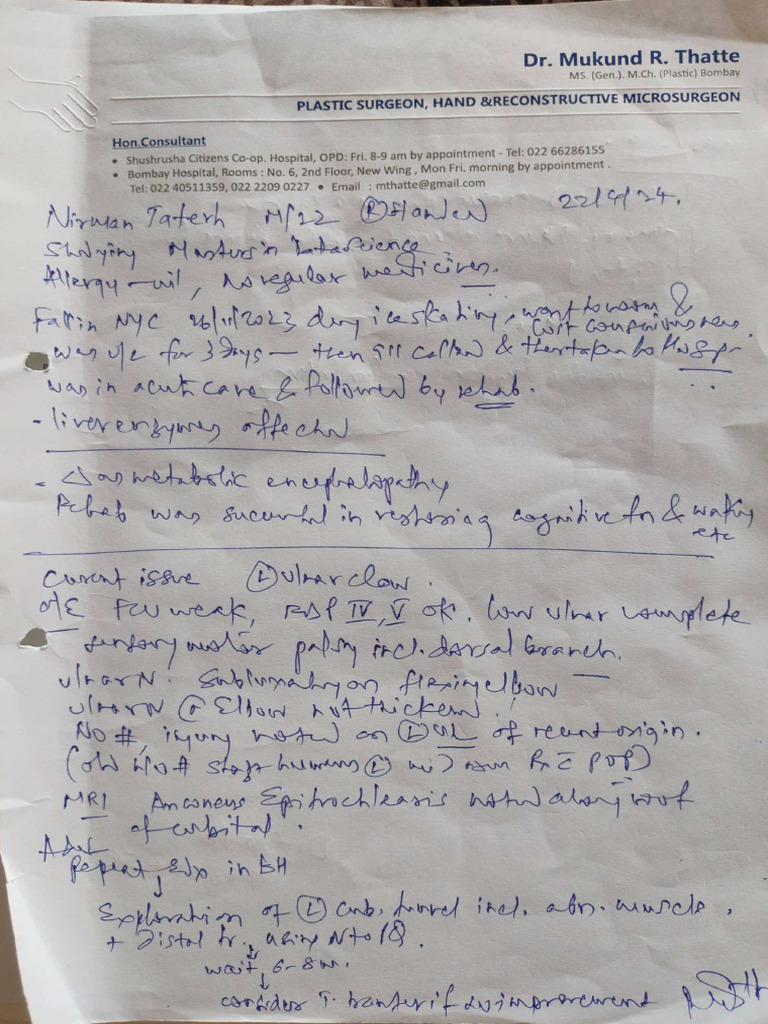 Dr. Mukund R. Thatte
MS. (Gen.). M.Ch. (Plastic) Bombay
PLASTIC SURGEON, HAND &RECONSTRUCTIVE MICROSURGEON
Hon.Consultant
• Shushrusha Citizens Co-op. Hospital, OPD: Fri. 8-9 am by appointment - Tel: 022 66286155
• Bombay Hospital, Rooms : No. 6, 2nd Floor, New Wing , Mon Fri. morning by appointment .
Tel: 022 40511359, 022 2209 0227 • Email : mthatte@gmail.com
22/4/24.
Nirman Taterh M/22 (R) Handed
Studying Masters in Data Science
Allergy - nil, no regular medicines.
Fall in NYC 26/11/2023 during ice skating, went to room &
lost consciousness.
was u/c for 3 days — then 911 called & then taken to Hosp.
was in acute care & followed by rehab.
- liver enzymes affected
- △ as metabolic encephalopathy
Rehab was successful in restoring cognitive fn & walking
etc
Current issue (L) ulnar claw.
O/E FCU weak, FDP IV, V ok. low ulnar complete
sensory motor palsy incl. dorsal branch.
ulnar N. Subluxating on flexing elbow
ulnar N @ Elbow not thickened.
No #, injury noted on (L) UL of recent origin.
(old H/o # shaft humerus (L) POP)
MRI Anconeus Epitrochlearis noted along roof
of cubital.
Adv
Repeat Edx in BH
Exploration of (L) cub. tunnel incl. abn. muscle.
+ Distal tr. using N to PQ.
wait 6-8 m.
consider T. transfer if no improvement